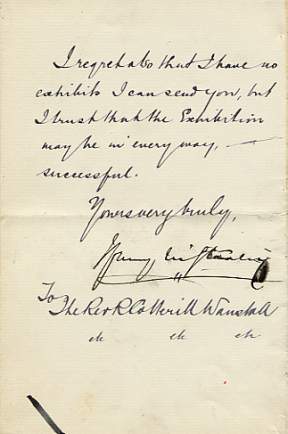 I regret also that I have no
exhibits I can send you, but
I trust that the Exhibition
may be in every way, —
successful.
Yours very truly,
Henry M Stanley
To
The Rev R Cotterill Wanstall
etc etc etc